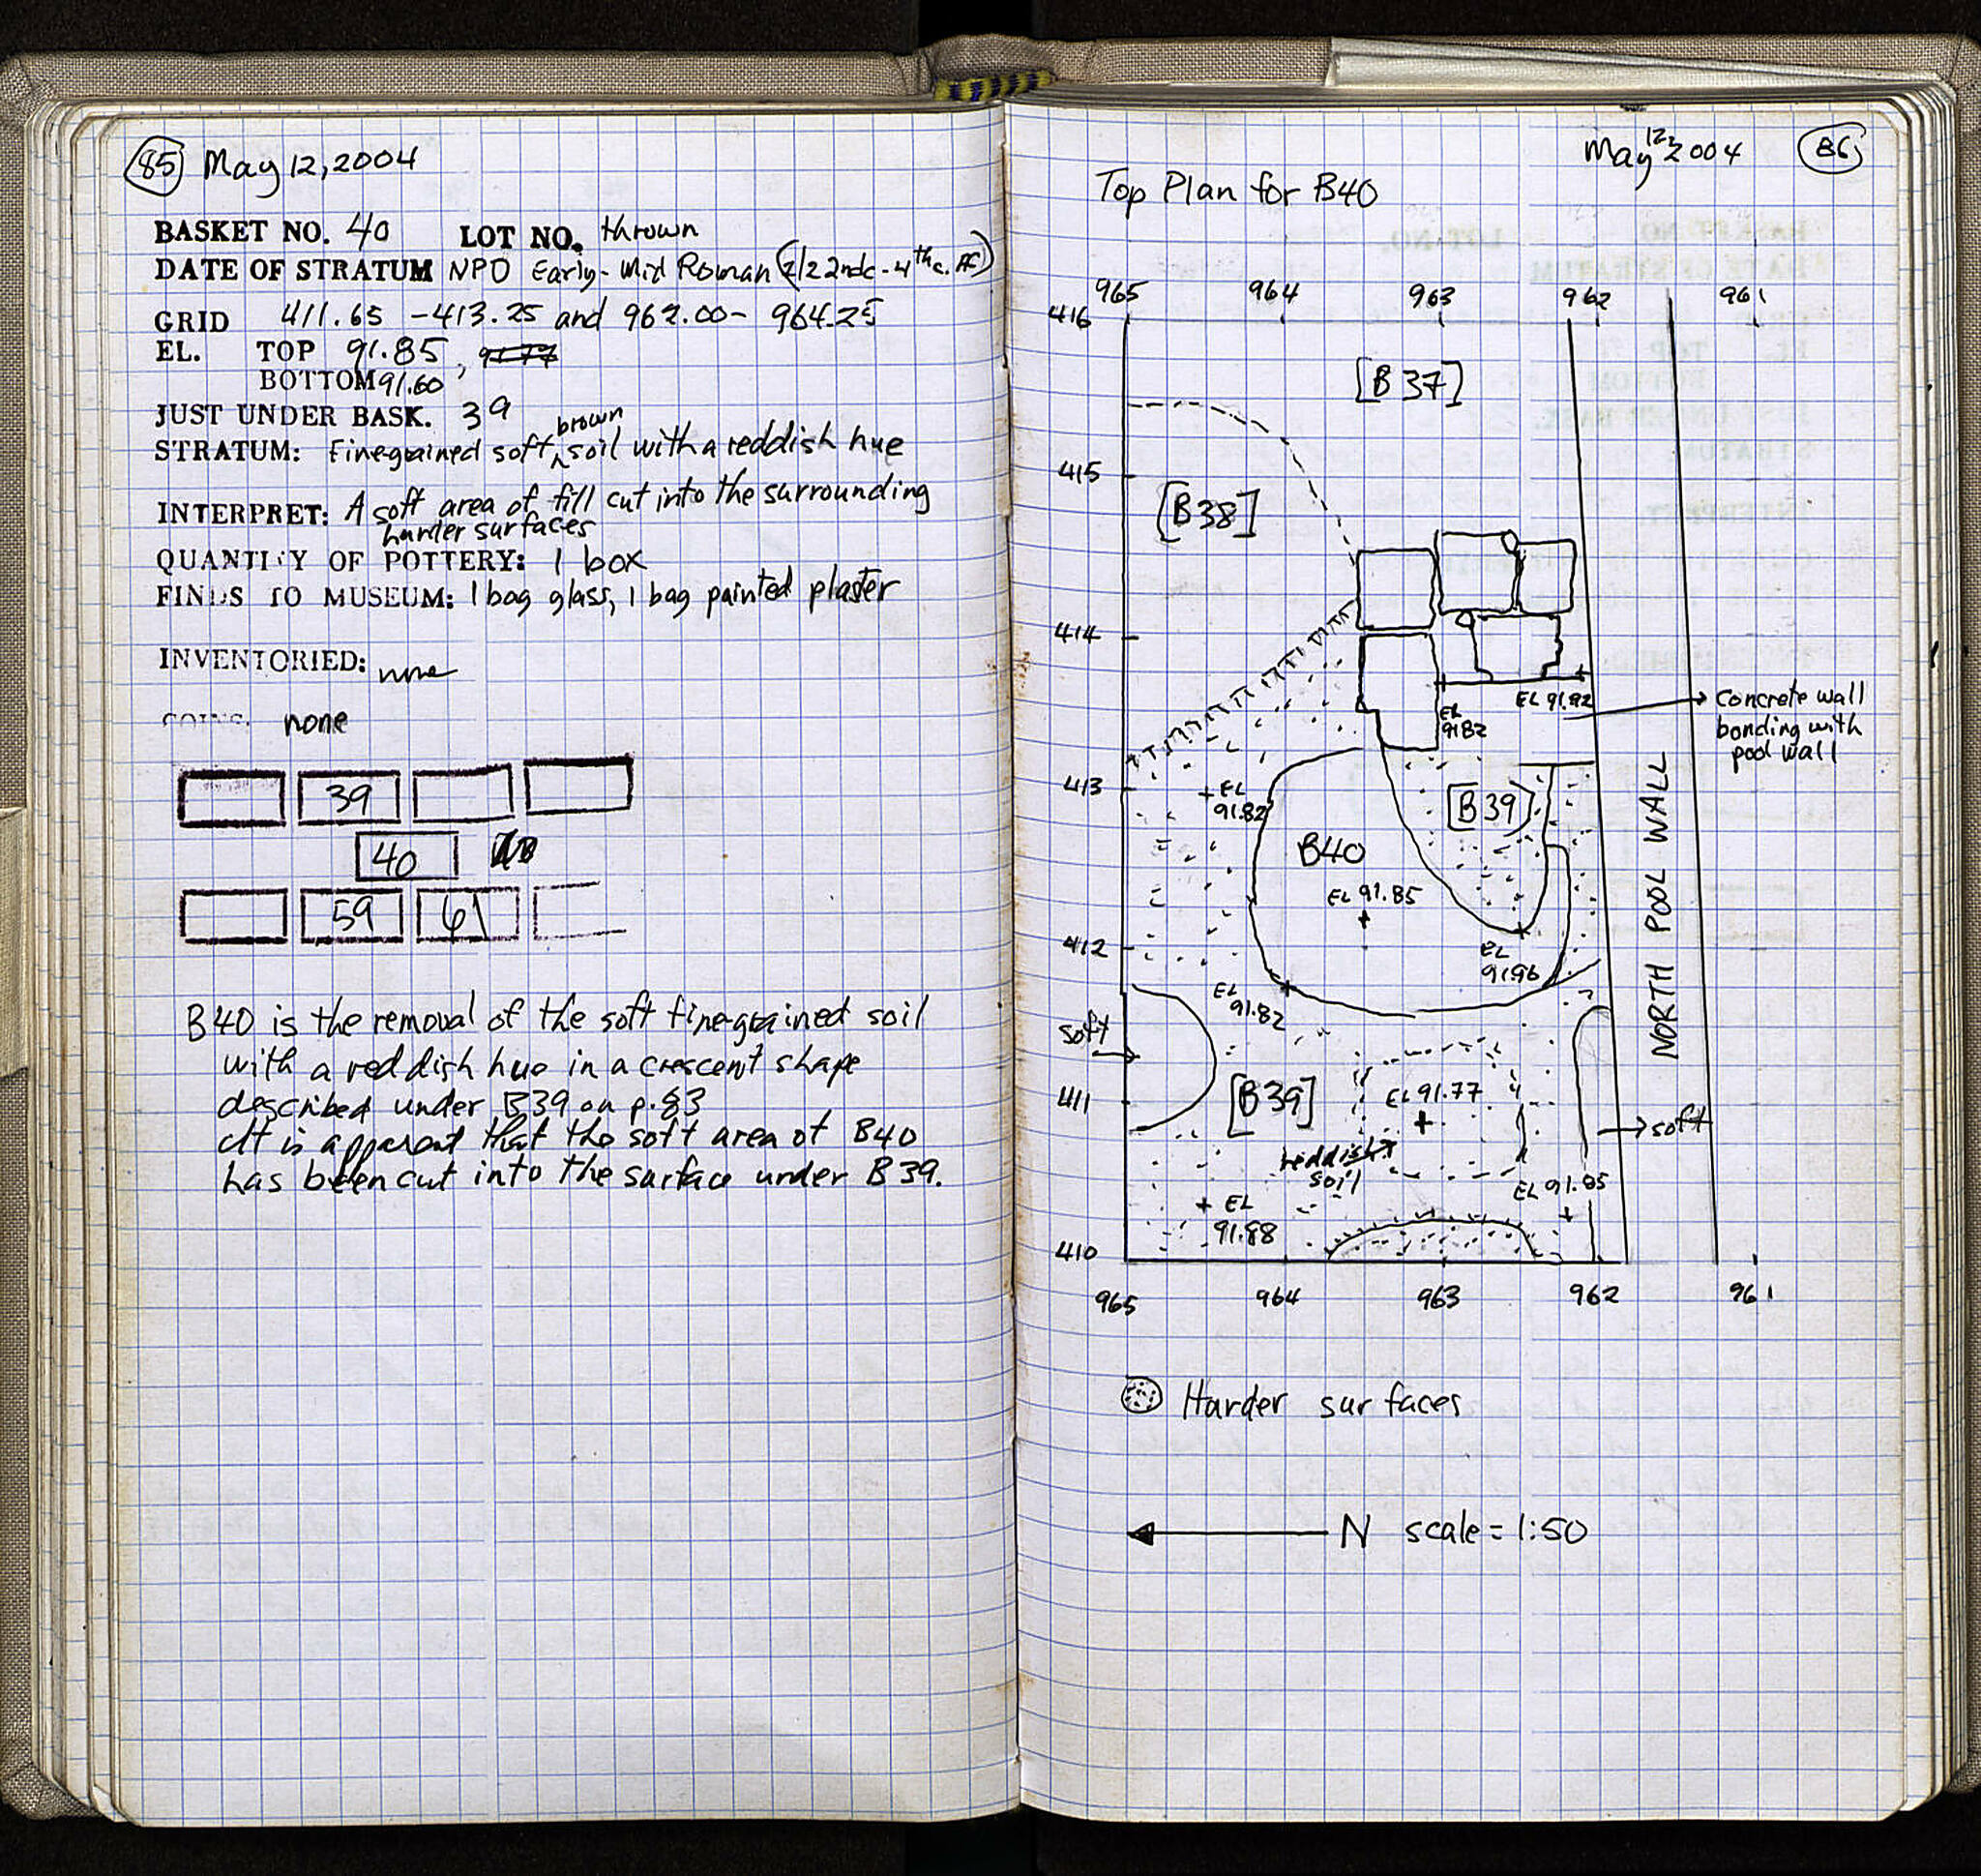 85 May 12, 2004
BASKET NO. 40 LOT NO. thrown
DATE OF STRATUM NPD Early-Mid Roman (2/2 2ndc - 4th c. AC)
GRID 411.65 - 413.25 and 962.00 - 964.25
EL. TOP 91.85, 91.77
BOTTOM 91.60
JUST UNDER BASK. 39
STRATUM: Finegrained soft brown soil with a reddish hue
INTERPRET: A soft area of fill cut into the surrounding
harder surfaces
QUANTITY OF POTTERY: 1 box
FINDS TO MUSEUM: 1 bag glass, 1 bag painted plaster
INVENTORIED: none
COINS: none
39
40
59 61
B40 is the removal of the soft finegrained soil
with a reddish hue in a crescent shape
described under B39 on p. 83
It is apparent that the soft area of B40
has been cut into the surface under B39.
May 12, 2004 86
Top Plan for B40
965 964 963 962 961
416
[B 37]
415
[B38]
414
EL 91.92
EL
91.82
Concrete wall
bonding with
pool wall
413
EL
91.82
[B39]
B40
EL 91.85
412
EL
91.96
EL
91.82
NORTH POOL WALL
soft
411
[B39]
EL 91.77
soft
reddish
soil
EL 91.85
EL
91.88
410
965 964 963 962 961
Harder surfaces
N scale = 1:50